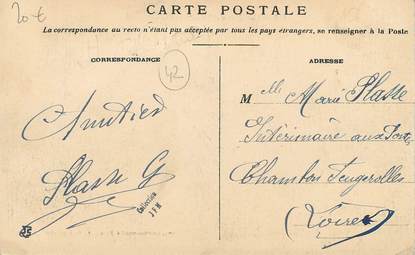 20 €
CARTE POSTALE
La correspondance au recto n'étant pas acceptée par tous les pays étrangers, se renseigner à la Poste
CORRESPONDANCE
42
Amitiés
Plasse G
Collection
J F M
ADRESSE
Melle Marie Plasse
Intérimaire aux Postes
Chambon Feugerolles
(Loire)